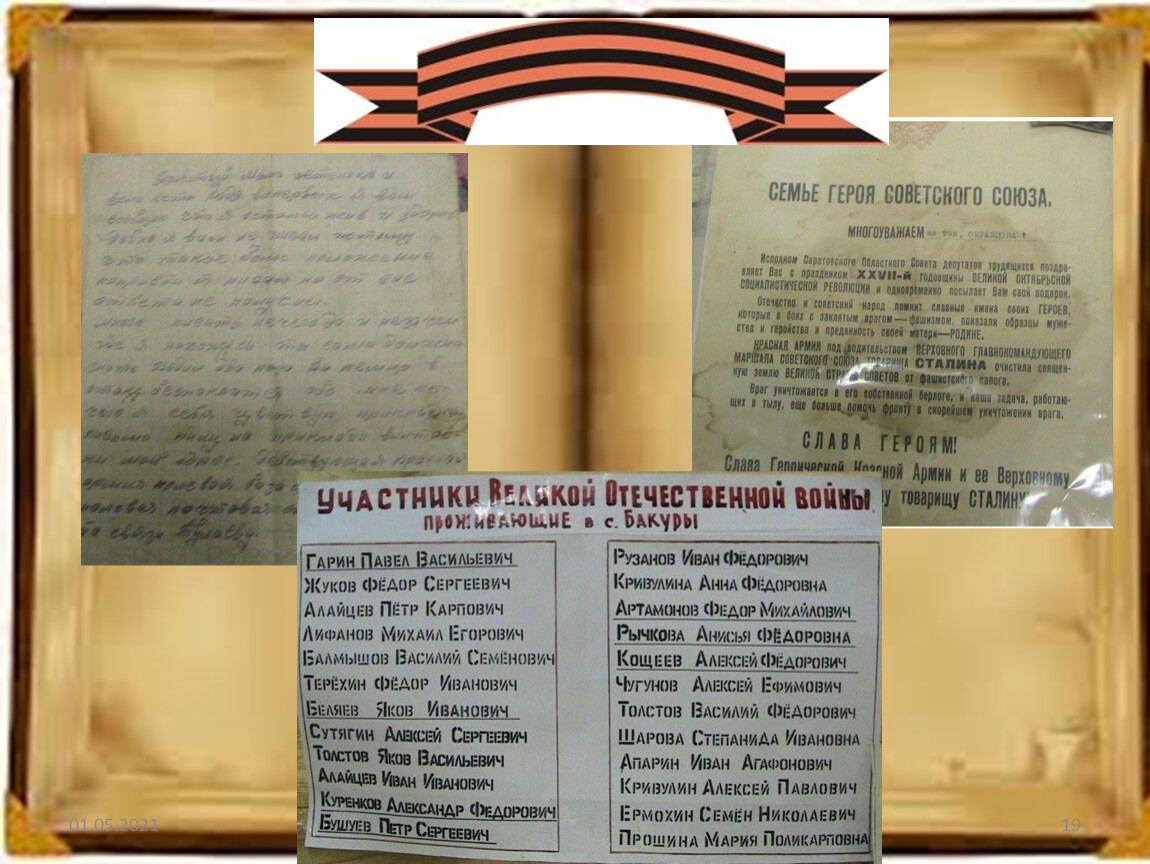 Здравствуй
вам
сообщаю что я остался жив и
вам не писал потому
что такое было положение
я писал но от вас
ответа не получил.
много писать нечего да и незачем
где я нахожусь ты сама должна
знать
я себя чувствую
письмо пишу на прикладе винтов-
ки мой адрес. Действующая красная
армия полевая
полевая почтовая
СЕМЬЕ ГЕРОЯ СОВЕТСКОГО СОЮЗА.
МНОГОУВАЖАЕМ тов.
Исполком Саратовского Областного Совета депутатов трудящихся поздра-
вляет Вас с праздником XXVII-й годовщины ВЕЛИКОЙ ОКТЯБРЬСКОЙ
СОЦИАЛИСТИЧЕСКОЙ РЕВОЛЮЦИИ и одновременно посылает Вам свой подарок.
Отечество и советский народ помнит славные имена своих ГЕРОЕВ,
которые в боях с заклятым врагом—фашизмом, показали образцы муже-
ства и геройства и преданность своей матери—РОДИНЕ.
КРАСНАЯ АРМИЯ под водительством ВЕРХОВНОГО ГЛАВНОКОМАНДУЮЩЕГО
МАРШАЛА СОВЕТСКОГО СОЮЗА ТОВАРИЩА СТАЛИНА очистила священ-
ную землю ВЕЛИКОЙ СТРАНЫ СОВЕТОВ от фашистского сапога.
Враг уничтожается в его собственной берлоге, и наша задача, работаю-
щих в тылу, еще больше помочь фронту в скорейшем уничтожении врага.
СЛАВА ГЕРОЯМ!
Слава Героической Красной Армии и ее Верховному
товарищу СТАЛИНУ
УЧАСТНИКИ ВЕЛИКОЙ ОТЕЧЕСТВЕННОЙ ВОЙНЫ
ПРОЖИВАЮЩИЕ В С. БАКУРЫ
ГАРИН ПАВЕЛ ВАСИЛЬЕВИЧ
ЖУКОВ ФЁДОР СЕРГЕЕВИЧ
АЛАЙЦЕВ ПЁТР КАРПОВИЧ
ЛИФАНОВ МИХАИЛ ЕГОРОВИЧ
БАЛМЫШОВ ВАСИЛИЙ СЕМЁНОВИЧ
ТЕРЁХИН ФЁДОР ИВАНОВИЧ
БЕЛЯЕВ ЯКОВ ИВАНОВИЧ
СУТЯГИН АЛЕКСЕЙ СЕРГЕЕВИЧ
ТОЛСТОВ ЯКОВ ВАСИЛЬЕВИЧ
АЛАЙЦЕВ ИВАН ИВАНОВИЧ
КУРЕНКОВ АЛЕКСАНДР ФЕДОРОВИЧ
БУШУЕВ ПЕТР СЕРГЕЕВИЧ
РУЗАНОВ ИВАН ФЁДОРОВИЧ
КРИВУЛИНА АННА ФЁДОРОВНА
АРТАМОНОВ ФЕДОР МИХАЙЛОВИЧ
РЫЧКОВА АНИСЬЯ ФЁДОРОВНА
КОЩЕЕВ АЛЕКСЕЙ ФЁДОРОВИЧ
ЧУГУНОВ АЛЕКСЕЙ ЕФИМОВИЧ
ТОЛСТОВ ВАСИЛИЙ ФЁДОРОВИЧ
ШАРОВА СТЕПАНИДА ИВАНОВНА
АПАРИН ИВАН АГАФОНОВИЧ
КРИВУЛИН АЛЕКСЕЙ ПАВЛОВИЧ
ЕРМОХИН СЕМЁН НИКОЛАЕВИЧ
ПРОШИНА МАРИЯ ПОЛИКАРПОВНА
01.05.2021
19